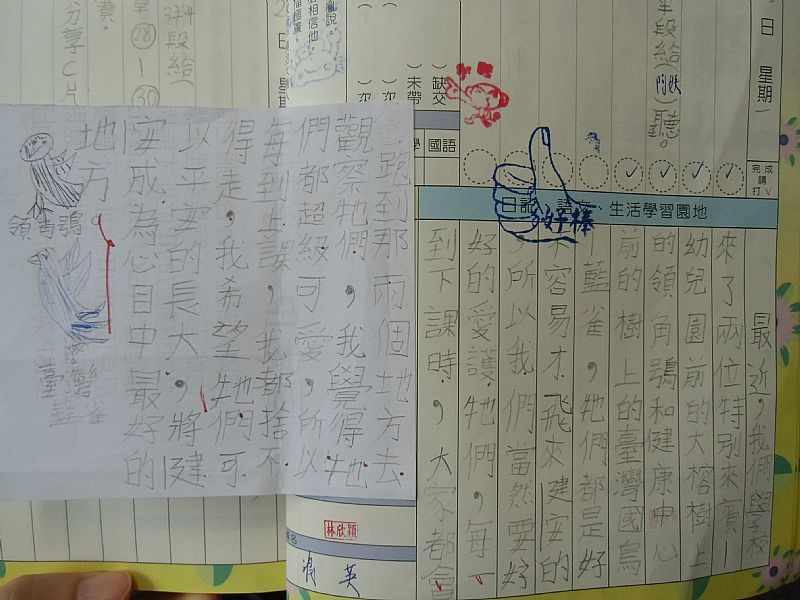 日 星期一
段給(阿姨)聽。
完成請打V
缺交
未帶
國語
日記、語文、生活學習園地
好棒
最近，我們學校
來了兩位特別來賓—
幼兒園前的大榕樹上
的領角鴞和健康中心
前的樹上的臺灣國鳥
藍雀，牠們都是好
不容易才飛來健安的
所以我們當然要好
好的愛護牠們，每一
到下課時，大家都會
跑到那兩個地方去
觀察牠們，我覺得牠
們都超級可愛，所以
每到上課，我都捨不
得走，我希望牠們可
以平安的長大，將健
安成為心目中最好的
地方。
領角鴞
臺灣
藍雀
林欣穎
相信他
日 星期
段給
㉘—㉚
分享C片